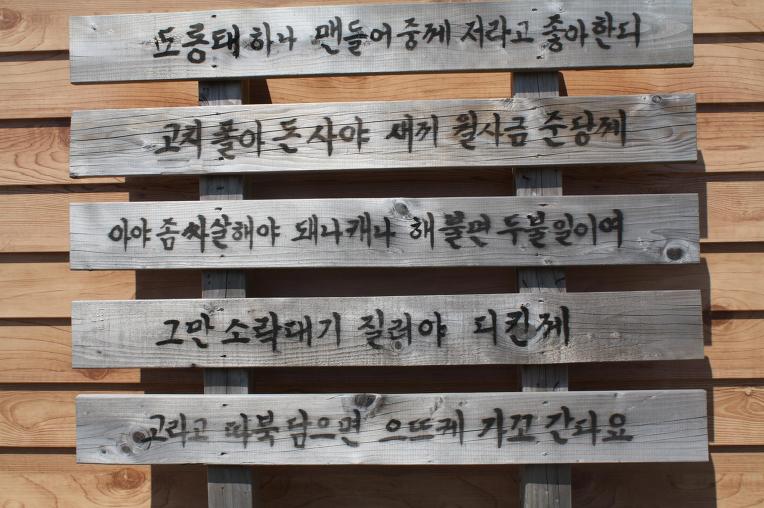 도롱태 하나 맨들어 중께 저라고 좋아한디
고치 폴아 돈 사야 새끼 월사금 준당께
아야 좀 싸살해야 돼나캐나 해불면 두불일이여
그만 소락대기 질러야 디킨께
고리고 따북 담으면 으뜨케 가꼬 간다요